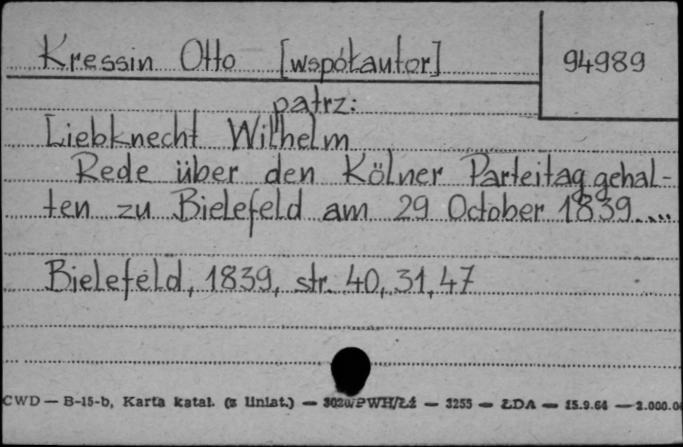 Kressin Otto [współautor]
94989
patrz:
Liebknecht Wilhelm
Rede über den Kölner Parteitag gehal-
ten zu Bielefeld am 29 October 1839....
Bielefeld, 1839, str. 40, 31, 47
CWD — B-15-b, Karta katal. (z liniat.) — PWH/Łź — 3255 — ŁDA — 15.9.64 — 2.000.0